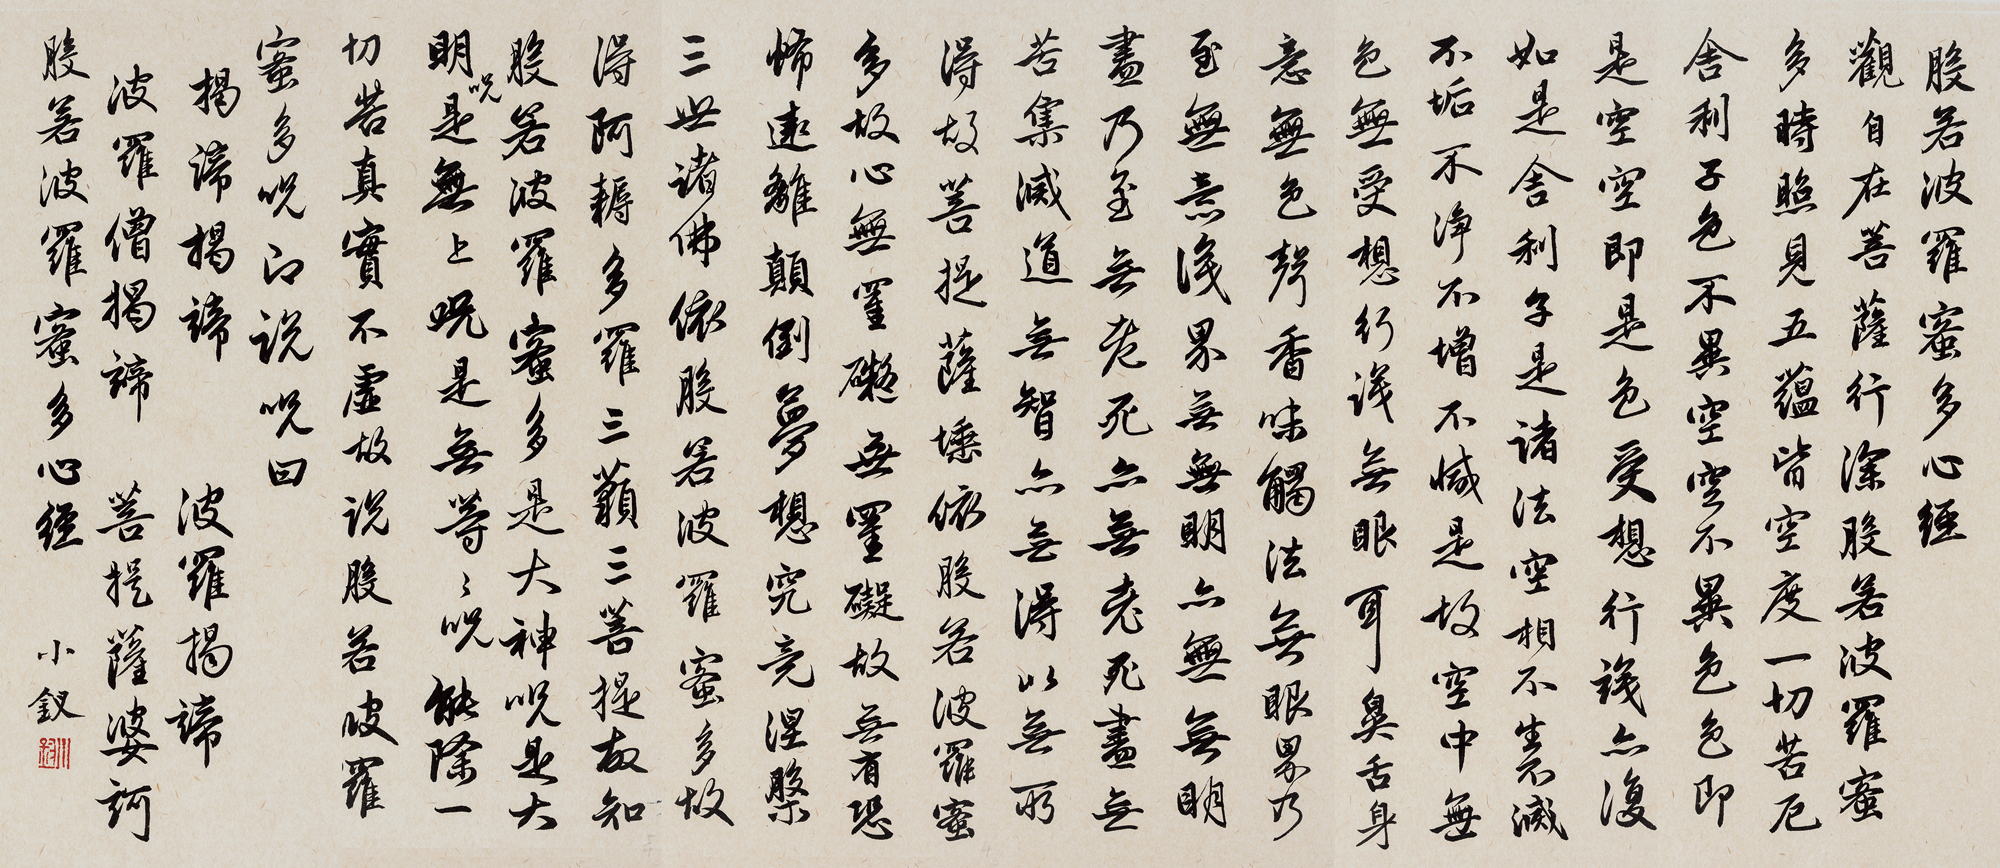 般若波羅蜜多心經
觀自在菩薩行深般若波羅蜜
多時照見五蘊皆空度一切苦厄
舍利子色不異空空不異色色即
是空空即是色受想行識亦復
如是舍利子是諸法空相不生不滅
不垢不淨不增不減是故空中無
色無受想行識無眼耳鼻舌身
意無色聲香味觸法無眼界乃
至無意識界無無明亦無無明
盡乃至無老死亦無老死盡無
苦集滅道無智亦無得以無所
得故菩提薩埵依般若波羅蜜
多故心無罣礙無罣礙故無有恐
怖遠離顛倒夢想究竟涅槃
三世諸佛依般若波羅蜜多故
得阿耨多羅三藐三菩提故知
般若波羅蜜多是大神呪是大
明呪是無上呪是無等々呪能除一
切苦真實不虛故說般若波羅
蜜多呪即說呪曰
揭諦揭諦 波羅揭諦
波羅僧揭諦 菩提薩婆訶
般若波羅蜜多心經 小釵